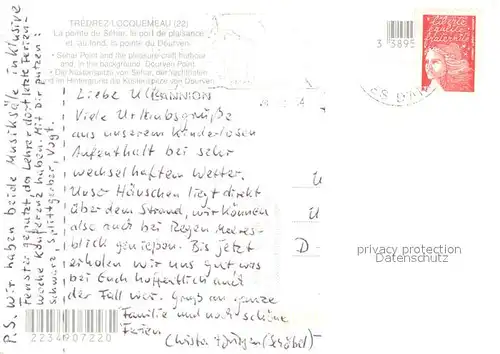 TRÉDREZ-LOCQUEMEAU (22)
La pointe du Séhar, le port de plaisance
et, au fond, la pointe du Dourven.
• Sehar Point and the pleasure-craft harbour
and, in the background, Dourven Point.
• Die Küstenspitze von Sehar, der Yachthafen
und im Hintergrund die Küstenspitze von Dourven.
LANNION
3 3895
Liebe Ulla
Viele Urlaubsgrüße
aus unserem kinderlosen
Aufenthalt bei sehr
wechselhaftem Wetter.
Unser Häuschen liegt direkt
über dem Strand, wir können
also auch bei Regen Meeres-
blick genießen. Bis jetzt
erholen wir uns gut was
bei Euch hoffentlich auch
der Fall war. Gruß an ganze
Familie und noch schöne
Ferien
Christa + Jürgen (Schöbel)
D-
P.S. Wir haben beide Musiksäle inklusive
Fenster geputzt, da Lehrer dort letzte Ferien-
woche Konferenz haben. Mit Dir putzen:
Schwarz, Splittgerber, Vogt.
2234907220
privacy protection
Datenschutz